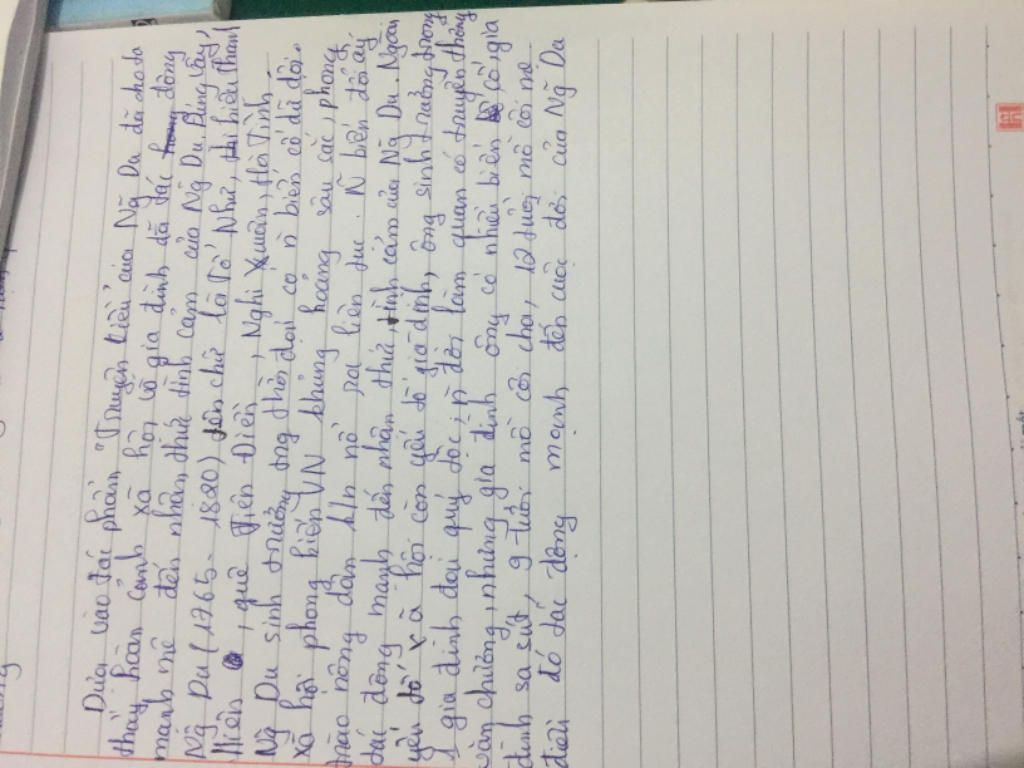 Dựa vào tác phẩm "Truyện Kiều" của Ng Du đã cho ta
thấy hoàn cảnh xã hội và gia đình đã tác động
mạnh mẽ đến nhận thức tình cảm của Ng Du. Đúng vậy,
Ng Du (1765 - 1820) tên chữ là Tố Như, hiệu Thanh
Hiên, quê Tiên Điền, Nghi Xuân, Hà Tĩnh.
Ng Du sinh trưởng trg thời đại có n biến cố dữ dội.
xã hội phong kiến VN khủng hoảng sâu sắc, phong
trào nông dân k/n nổ ra liên tục. N biến đổi ấy
tác động mạnh đến nhận thức, tình cảm của Ng Du. Ngoài
yếu tố xã hội còn yếu tố gia đình, ông sinh trưởng trong
1 gia đình đại quý tộc, n đời làm quan có truyền thống
văn chương, nhưng gia đình ông có nhiều biến cố, gia
đình sa sút, 9 tuổi mồ côi cha, 12 tuổi mồ côi mẹ
điều đó tác động mạnh đến cuộc đời của Ng Du